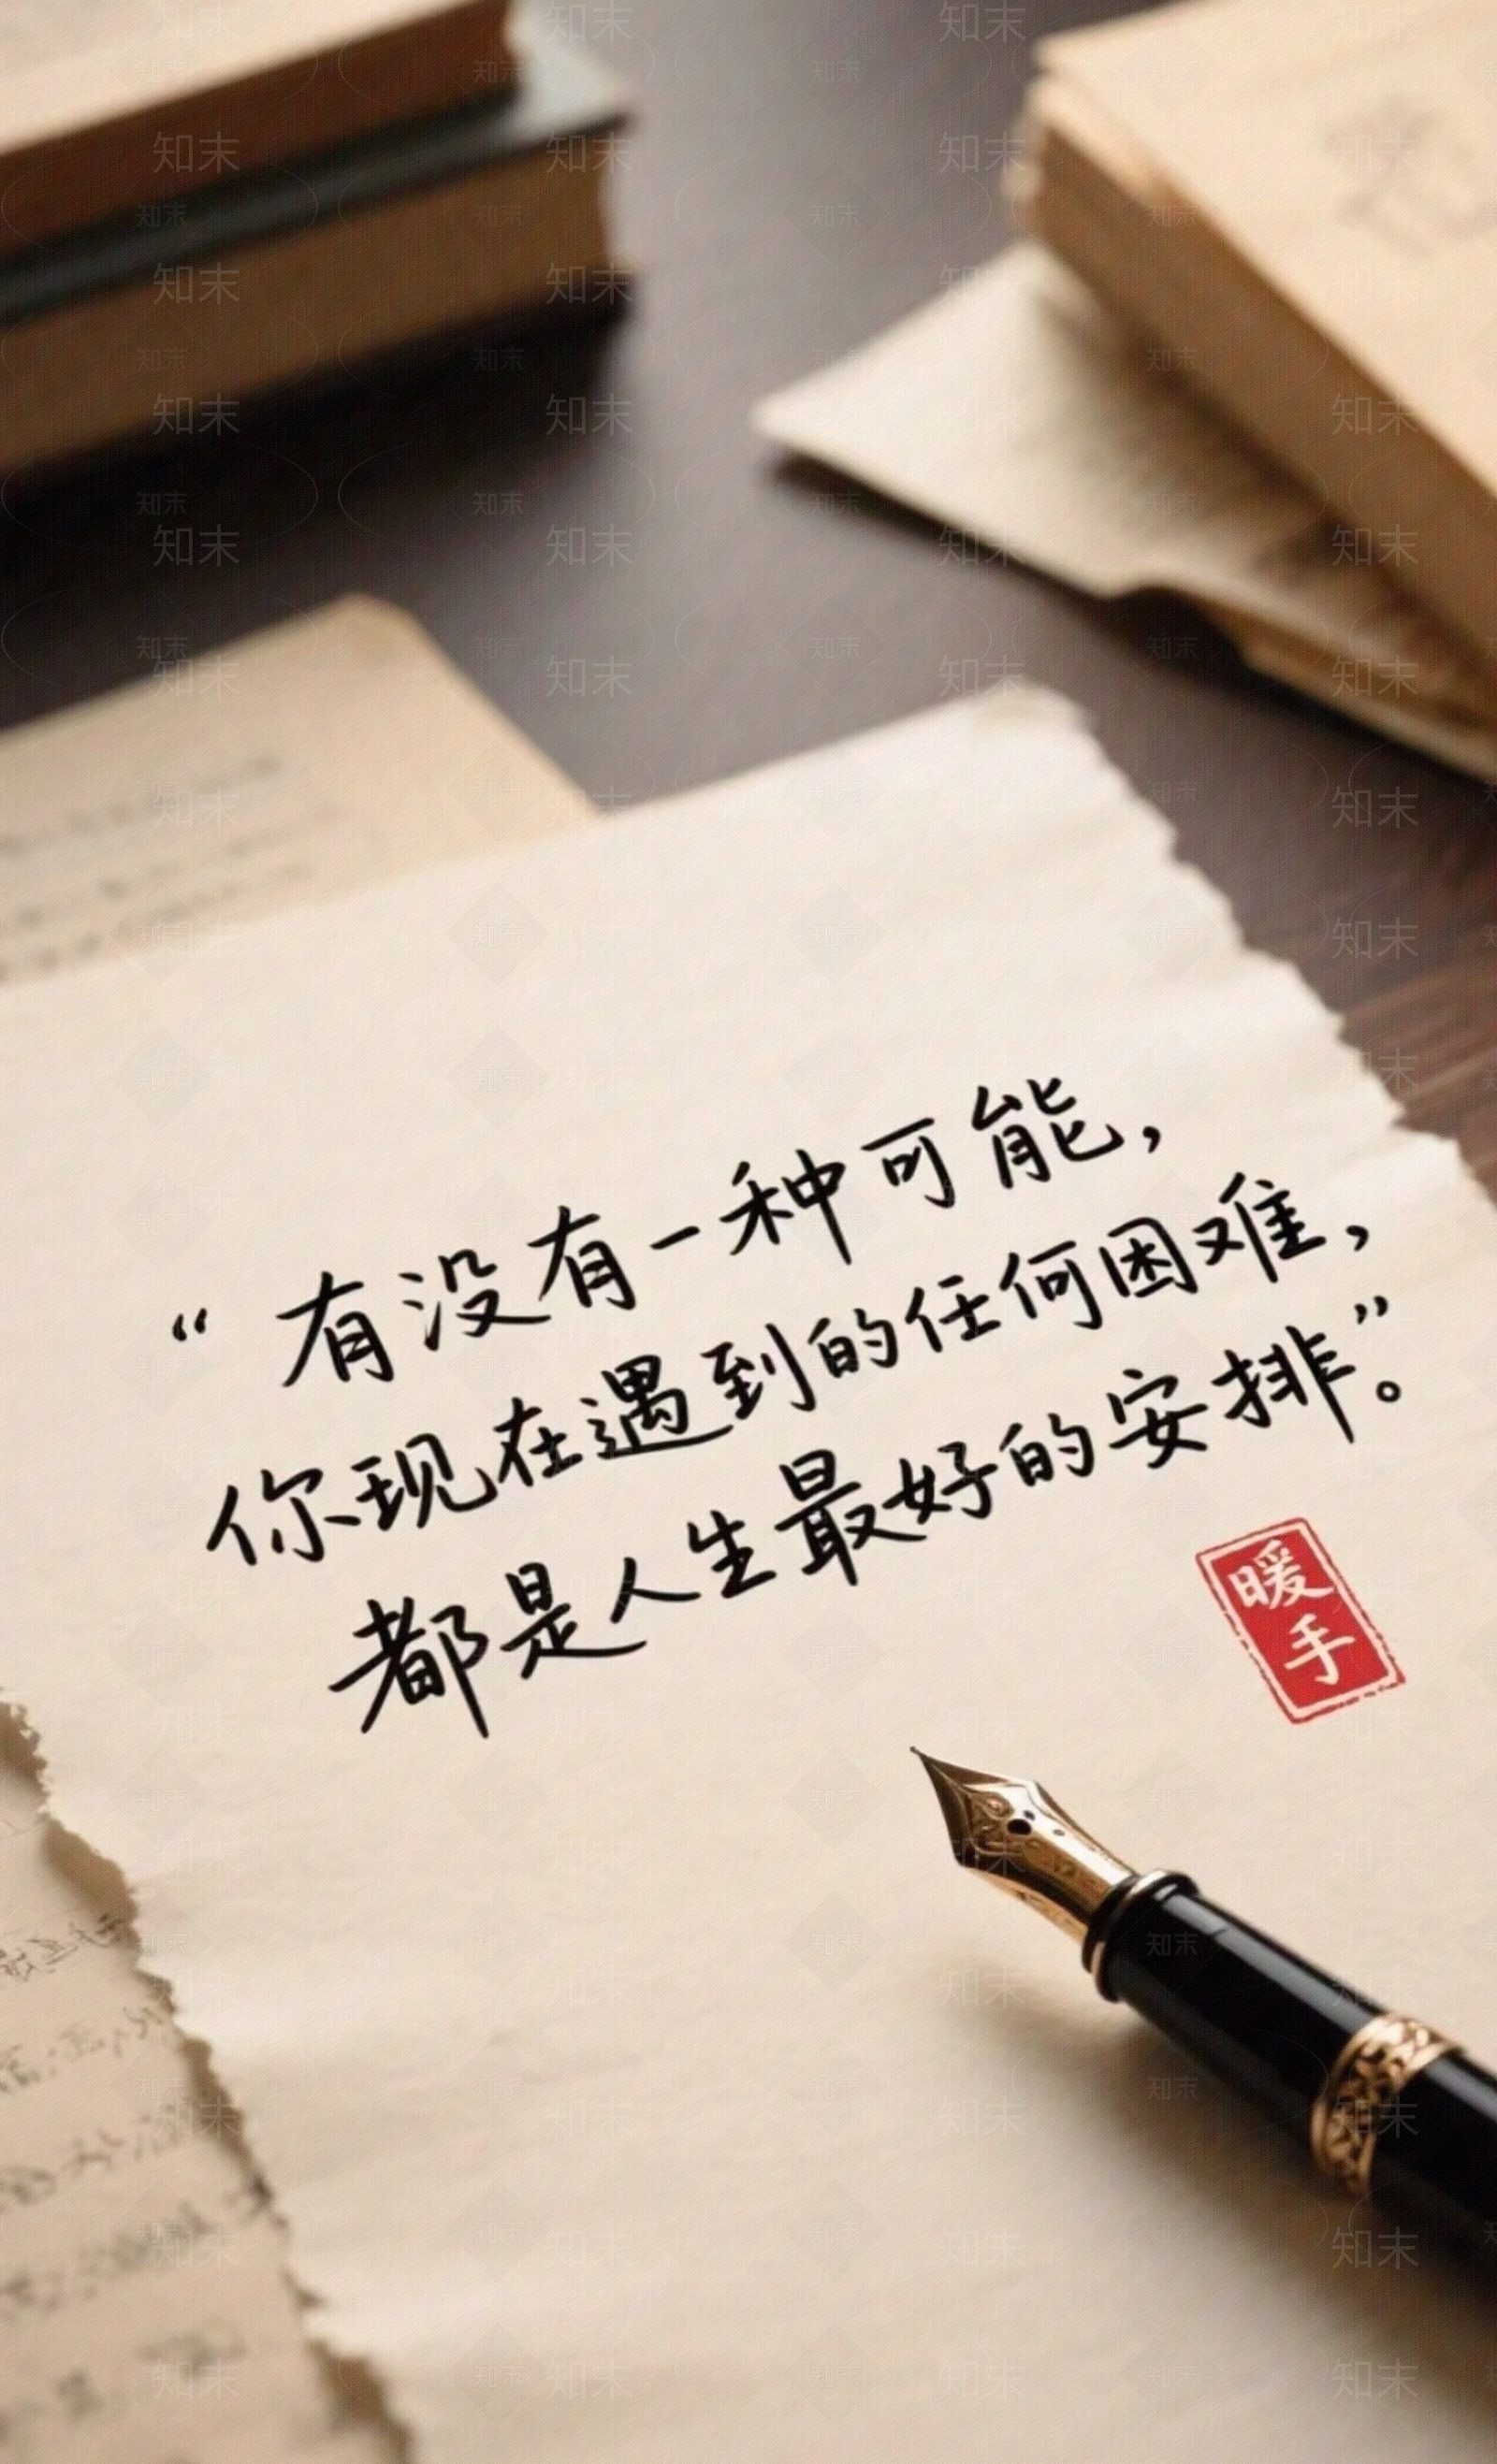 “有没有一种可能,
你现在遇到的任何困难,
都是人生最好的安排。”
暖手
知末